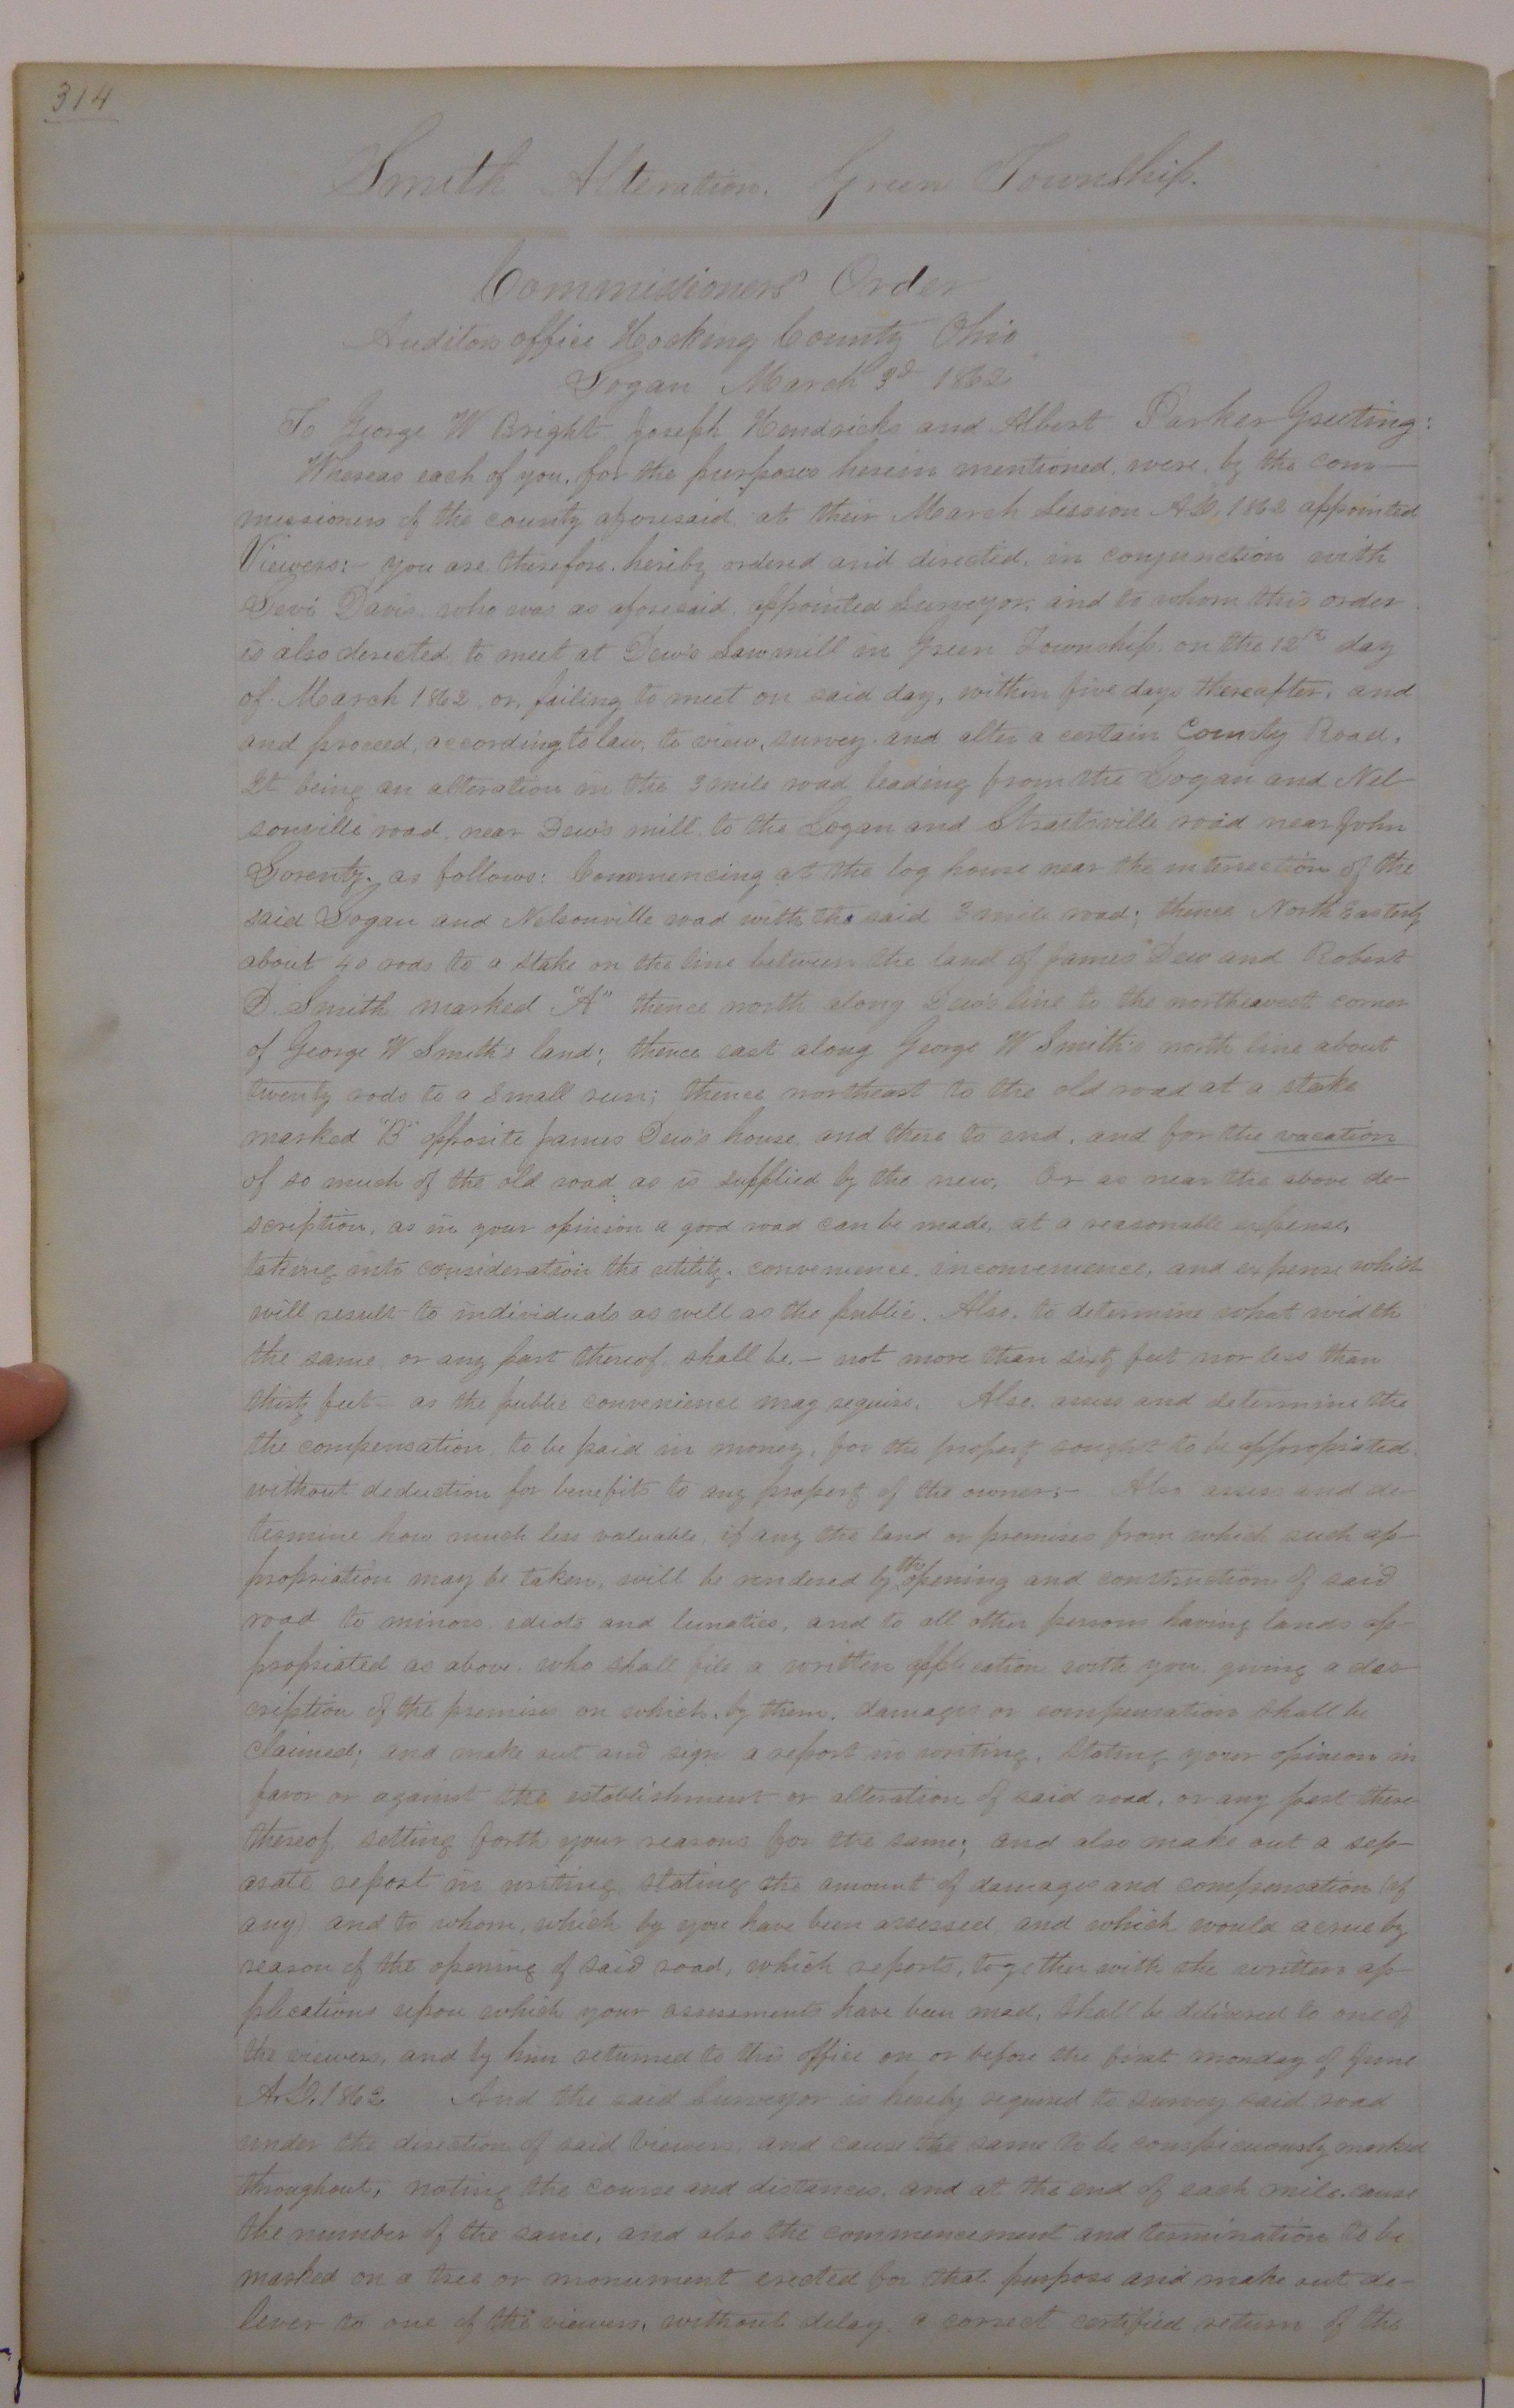 314
Smith Alteration. Green Township.
Commissioners Order
Auditors office Hocking County Ohio
Logan March 3d 1862
To George W Bright Joseph Hendricks and Albert Parker Greeting:
Whereas each of you, for the purposes herein mentioned, were, by the com-
missioners of the county aforesaid, at their March Session A.D. 1862 appointed
Viewers:- you are, therefore, hereby ordered and directed, in conjunction with
Levi Davis, who was as aforesaid, appointed Surveyor, and to whom this order
is also derected, to meet at Dew's Sawmill in Green Township, on the 12th day
of March 1862, or, failing to meet on said day, within five days thereafter, and
and proceed, according to law, to view, survey and alter a certain County Road,
It being an alteration in the 3 mile road leading from the Logan and Nel-
sonville road, near Dew's mill, to the Logan and Straitsville road near John
Lorentz, as follows: Commencing at the log house near the intersection of the
said Logan and Nelsonville road with the said 3 mile road; thence North Easterly
about 40 rods to a stake on the line between the land of James Dew and Robert
D. Smith marked "A" thence north along Dew's line to the northwest corner
of George W Smith's land; thence east along George W Smith's north line about
twenty rods to a small run; thence northeast to the old road at a stake
marked "B" opposite James Dew's house, and there to end, and for the vacation
of so much of the old road as is supplied by the new, Or as near the above de-
scription, as in your opinion a good road can be made, at a reasonable expense,
taking into consideration the utility, convenience, inconvenience, and expense which
will result to individuals as well as the public. Also, to determine what width
the same, or any part thereof, shall be,- not more than sixty feet nor less than
thirty feet- as the public convenience may require. Also, assess and determine the
the compensation, to be paid in money, for the property sought to be appropriated
without deduction for benefits to any property of the owner;- Also assess and de-
termine how much less valuable, if any the land or premises from which such ap-
propriation may be taken, will be rendered by the opening and construction of said
road to minors, idiots and lunatics, and to all other persons having lands ap-
propriated as above, who shall file a written application with you, giving a des-
cription of the premises on which, by them, damages or compensation shall be
claimed; and make out and sign a report in writing, stating your opinion in
favor or against the establishment or alteration of said road, or any part there-
thereof, setting forth your reasons for the same; and also make out a sep-
arate report in writing, stating the amount of damages and compensation (if
any) and to whom, which by you have been assessed, and which would acrue by
reason of the opening of said road, which reports, together with the written ap-
plications upon which your assessments have been mad, shall be delivered to one of
the viewers, and by him returned to this office on or before the first monday of June
A.D. 1862 And the said Surveyor is hereby required to survey said road
under the direction of said Viewers, and cause the same to be conspicuously marked
throughout, noting the course and distances, and at the end of each mile, cause
the number of the same, and also the commencement and termination to be
marked on a tree or monument erected for that purpose and make out de-
liver to one of the viewers, without delay, a correct certified return of the